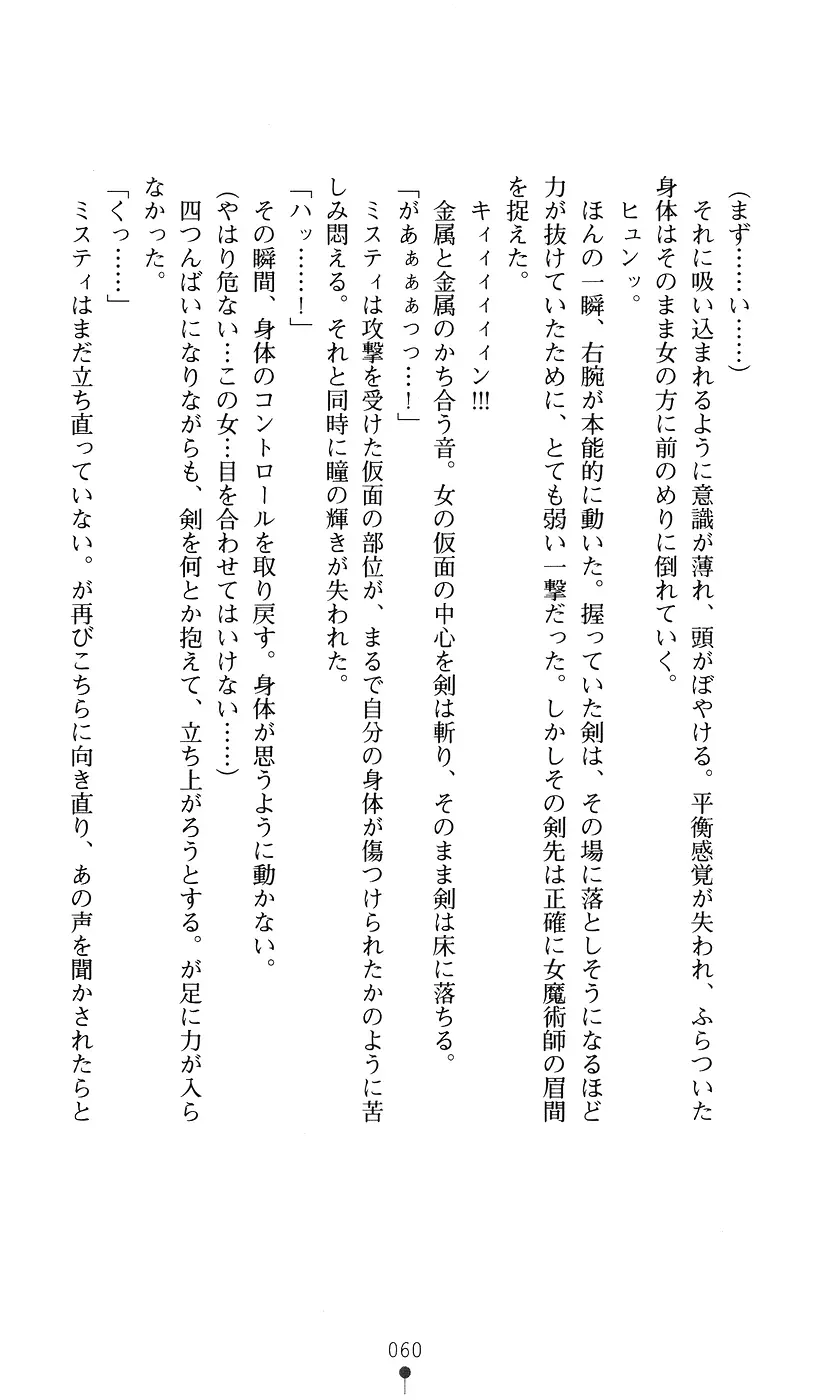 (まず……い……)
　それに吸い込まれるように意識が薄れ、頭がぼやける。平衡感覚が失われ、ふらついた
身体はそのまま女の方に前のめりに倒れていく。
　ヒュンッ。
　ほんの一瞬、右腕が本能的に動いた。握っていた剣は、その場に落としそうになるほど
力が抜けていたために、とても弱い一撃だった。しかしその剣先は正確に女魔術師の眉間
を捉えた。
　キィィィィィン!!!
　金属と金属のかち合う音。女の仮面の中心を剣は斬り、そのまま剣は床に落ちる。
「があぁぁぁっっ…！」
　ミスティは攻撃を受けた仮面の部位が、まるで自分の身体が傷つけられたかのように苦
しみ悶える。それと同時に瞳の輝きが失われた。
「ハッ……！」
　その瞬間、身体のコントロールを取り戻す。身体が思うように動かない。
(やはり危ない…この女…目を合わせてはいけない……)
　四つんばいになりながらも、剣を何とか抱えて、立ち上がろうとする。が足に力が入ら
なかった。
「くっ……」
　ミスティはまだ立ち直っていない。が再びこちらに向き直り、あの声を聞かされたらと
060